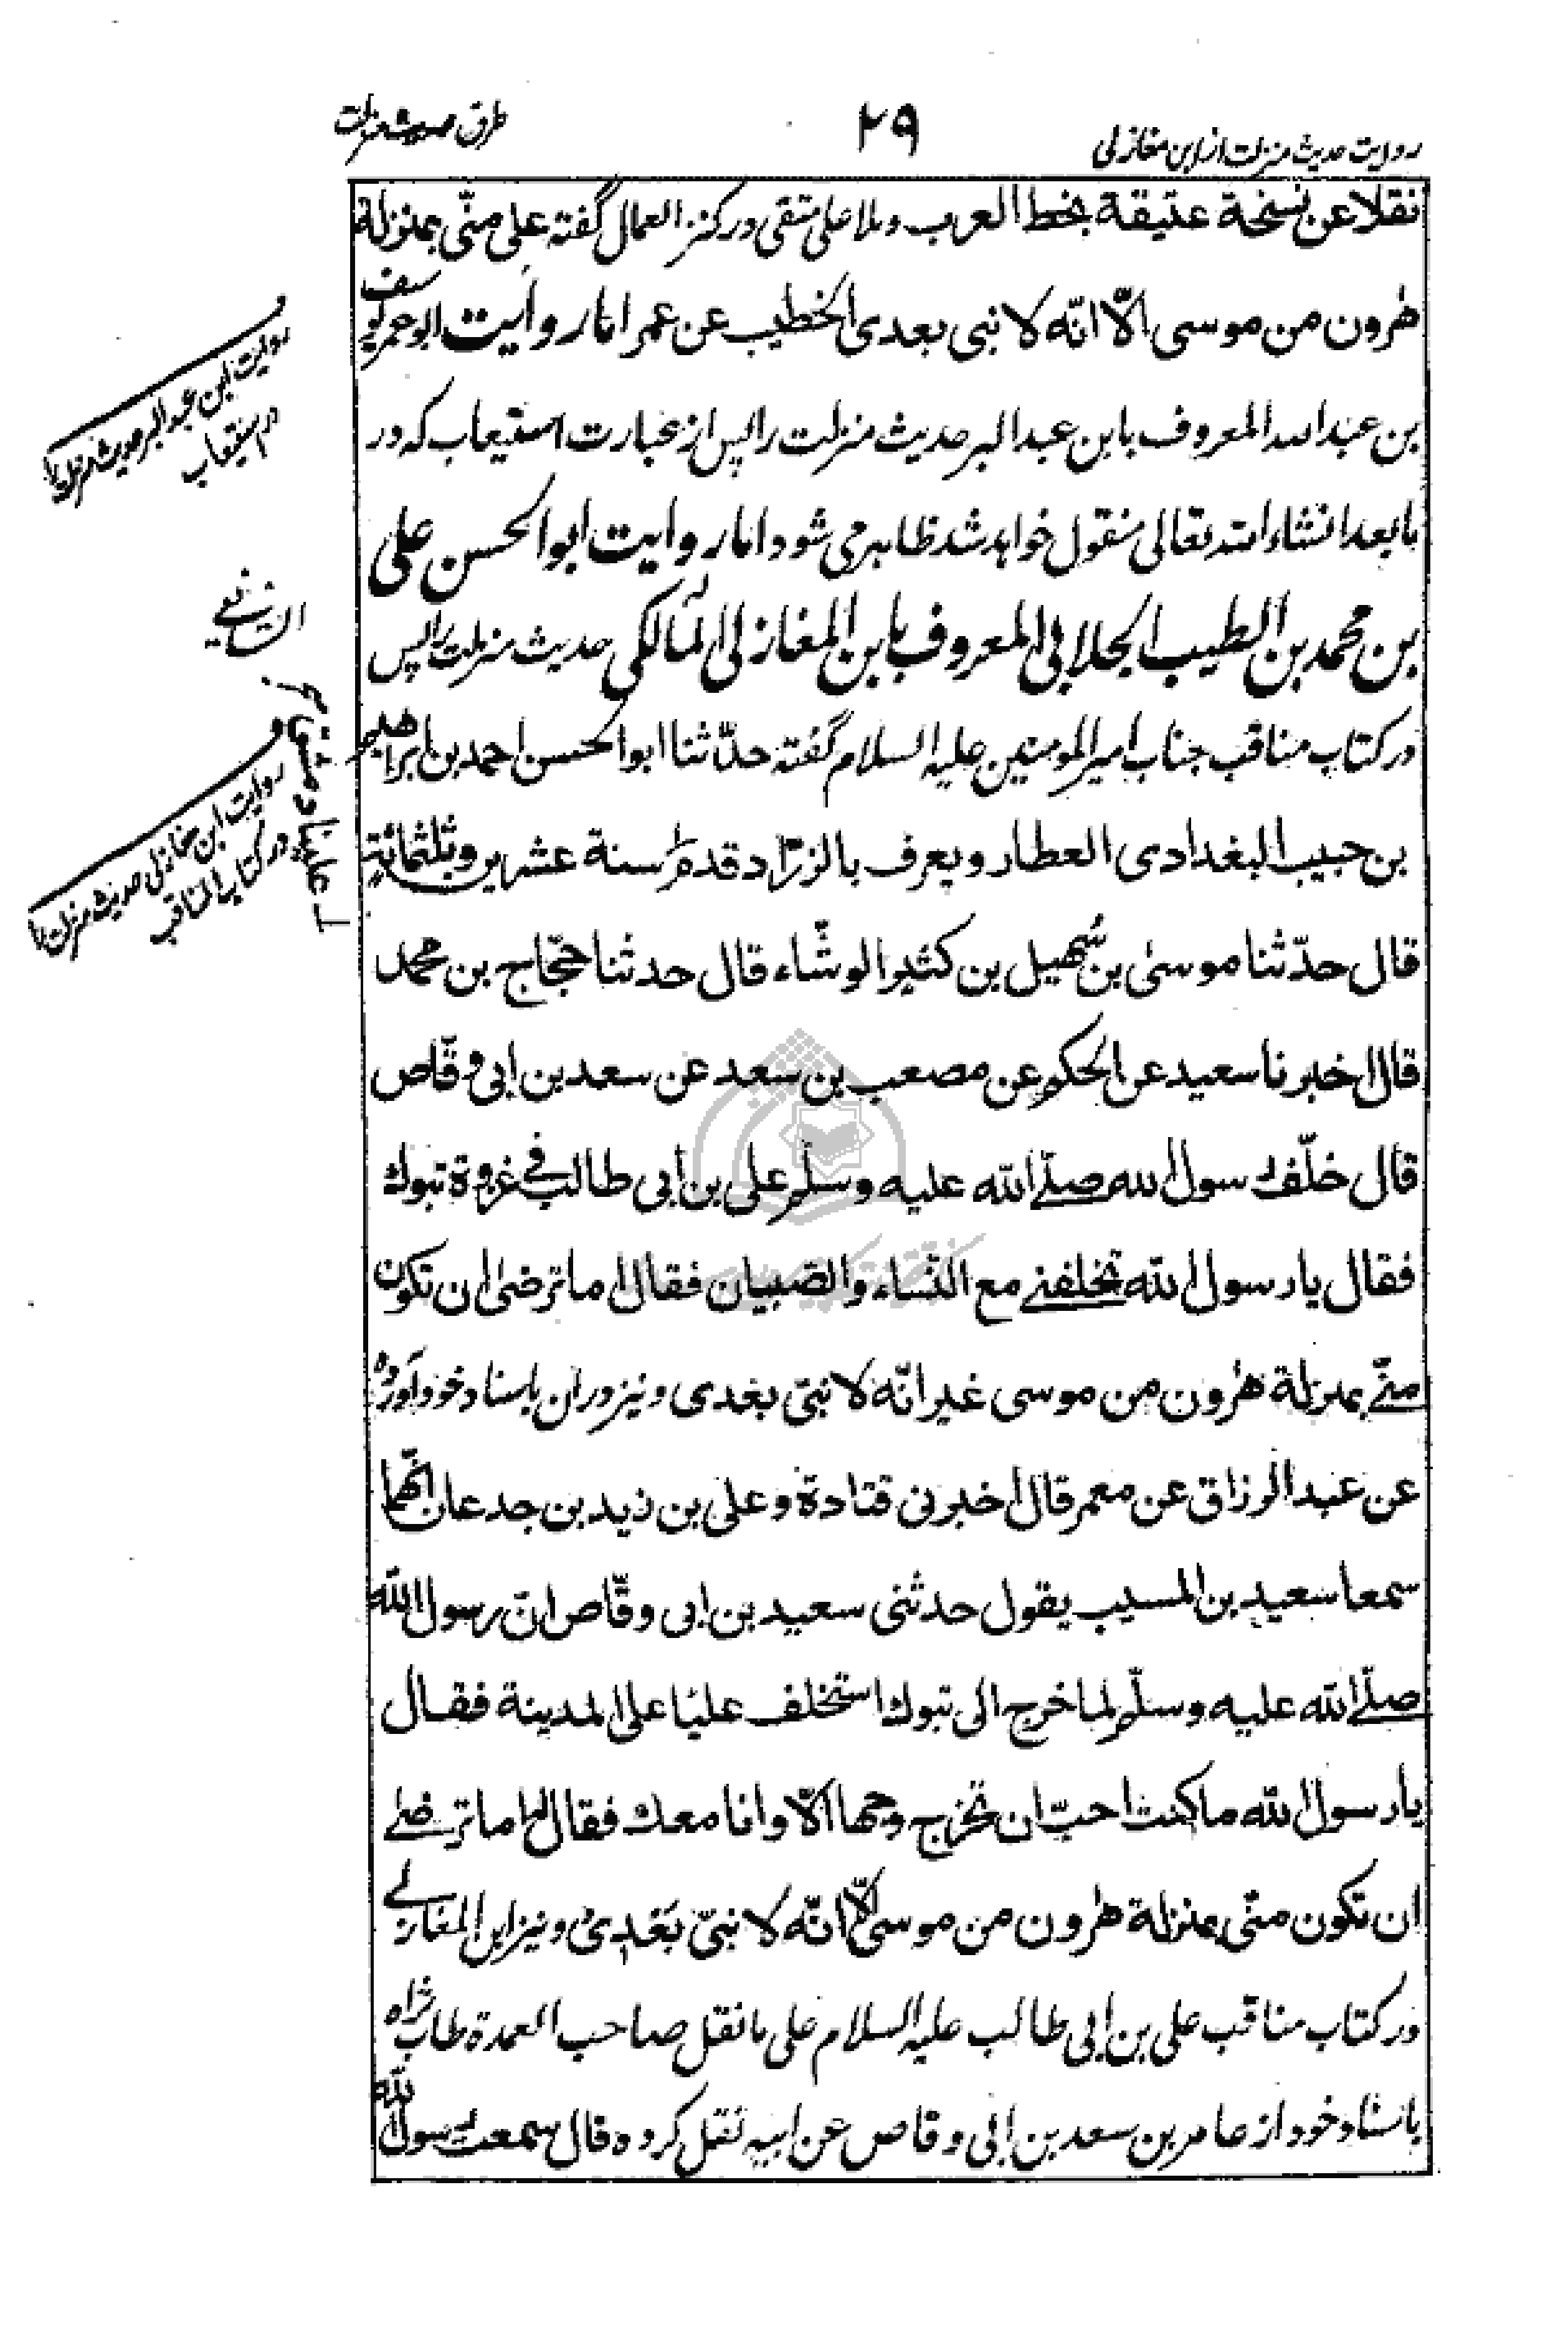 روایت حدیث منزلت از ابن مغازلی
۲۹
طرق حدیث منزلت
نقلا عن نسخة عتیقة بخط العرب وملا علی متقی در کنز العمال گفته علی منّی بمنزلة
هرون من موسی الّا انّه لا نبی بعدی الخطیب عن عمر اما روایت ابو عمر یوسف
بن عبد الله المعروف بابن عبد البر حدیث منزلت را پس از عبارت استیعاب که در
ما بعد انشاء الله تعالی منقول خواهد شد ظاهر می شود اما روایت ابو الحسن علی
بن محمد بن الطیب الجلابی المعروف بابن المغازلی المالکی حدیث منزلت را پس
در کتاب مناقب جناب امیر المومنین علیه السلام گفته حدّثنا ابو الحسن احمد بن ابراهیم
بن حبیب البغدادی العطار ویعرف بالزرّاد قدم سنة عشرین وثلثمائة
قال حدّثنا موسیٰ بن سُهیل بن کثیر الوشّاء قال حدثنا حجّاج بن محمد
قال اخبرنا سعید عن الحکم عن مصعب بن سعد عن سعد بن ابی وقّاص
قال خلّف رسول الله صلّے الله علیه وسلّم علی بن أبی طالب فی غزوة تبوك
فقال یا رسول الله تخلفنے مع النّساء والصّبیان فقال اما ترضیٰ ان تکون
منّے بمنزلة هرون من موسی غیر انّه لا نبیّ بعدی ونیز دران باسناد خود آورده
عن عبد الرزاق عن معمر قال اخبرنی قتادة وعلی بن زید بن جدعان انّهما
سمعا سعید بن المسیب یقول حدثنی سعید بن ابی وقّاص انّ رسول الله
صلّے الله علیه وسلّم لما خرج الی تبوك استخلف علیّا علی المدینة فقال
یا رسول الله ما کنت احبّ ان تخرج وجها الّا وانا معك فقال اما ترضے
ان تکون منّی بمنزلة هرون من موسی الّا انّه لا نبیّ بعدی ونیز ابن المغازلے
در کتاب مناقب علی بن ابی طالب علیه السلام علی ما نقل صاحب العمدة طاب ثراه
باسناد خود از عامر بن سعد بن ابی وقاص عن ابیه نقل کرده قال سمعت رسول الله
روایت ابن عبد البر حدیث منزلت را
در استیعاب
الشافعی
روایت ابن مغازلی حدیث منزلت را
در کتاب المناقب